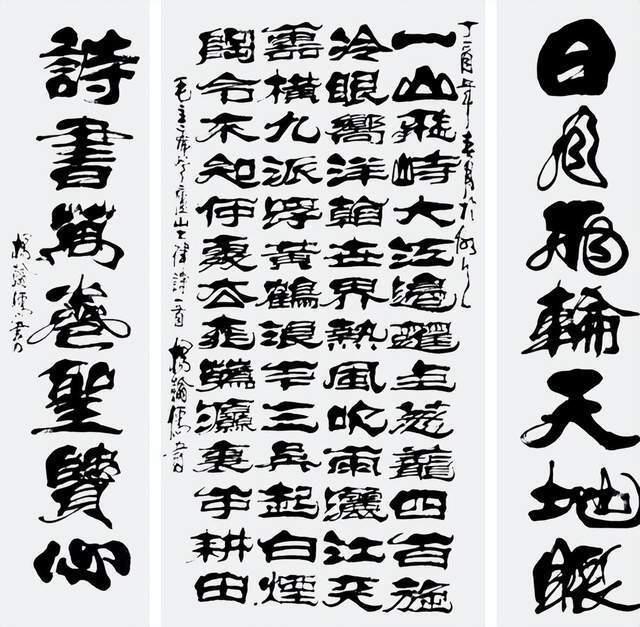 日月兩輪天地眼
丁酉年春月於
一山飛峙大江邊躍上葱龍四百旋
冷眼嚮洋看世界熱風吹雨灑江天
雲橫九派浮黃鶴浪下三吳起白煙
陶令不知何處去桃花源裏可耕田
毛主席登廬山七律詩一首 楊翰儒書
詩書萬卷聖賢心
楊翰儒書